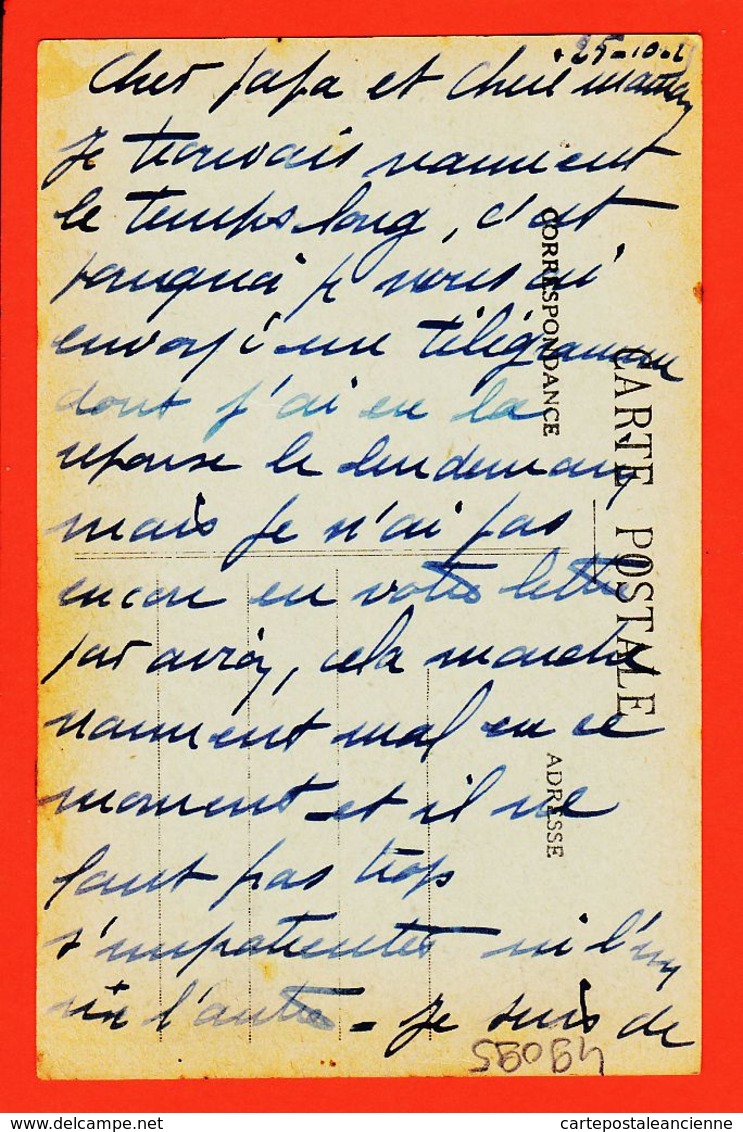 25-10-
Cher papa et chere maman
Je trouvais vraiment
le temps long, c'est
pourquoi je vous ai
envoyé une télégramme
dont j'ai eu la
reponse le lendemain
mais je n'ai pas
encore eu votre lettre
par avion, cela marche
vraiment mal en ce
moment et il ne
faut pas trop
s'impatienter ni l'un
ni l'autre - Je suis de
CORRESPONDANCE
CARTE POSTALE
ADRESSE
delcampe.net
cartepostaleancienne